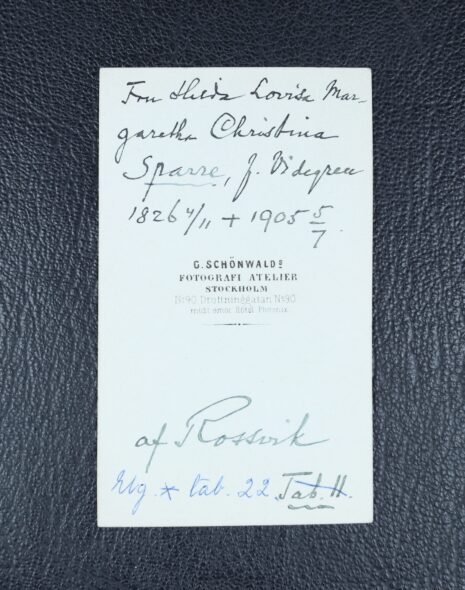 Fru Hilda Lovisa Mar-
garetha Christina
Sparre, f. Videgren
1826 4/11 + 1905 5/7.
G. SCHÖNWALDS
FOTOGRAFI ATELIER
STOCKHOLM
No 90 Drottninggatan No 90
midt emot Hôtel Phoenix.
af Rossvik
Elg. * tab. 22 Tab. H.